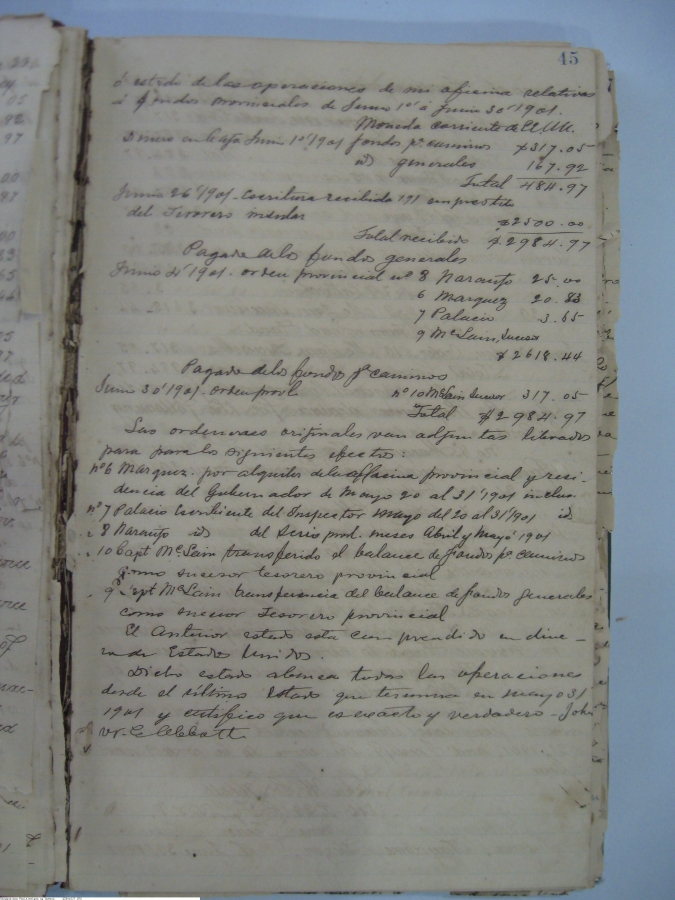 45
ó estado de las operaciones de mi oficina relativas
á fondos provinciales de Junio 1º á Junio 30 1901.
Moneda corriente de E.U.U.
Dinero en la caja Junio 1º 1901 fondos pª caminos $317.05
id generales 167.92
Total 484.97
Junio 26 1901. Escritura recibida empréstito
del Tesorero insular $2500.00
Total recibido $2984.97
Pagado de los fondos generales
Junio 4 1901. orden provincial nº 8 Naranjo 25.00
6 Marquez 20.83
7 Palacio 3.65
9 McLain, Sucesor
$2618.44
Pagado de los fondos pª caminos
Junio 30 1901. orden provl. nº 10 McLain Sucesor 317.05
Total $2984.97
Las ordenes originales van adjuntas libradas
para los siguientes efectos:
nº 6 Marquez. por alquiler de la oficina provincial y resi-
dencia del Gobernador de Mayo 20 al 31 1901
nº 7 Palacio Escribiente del Inspector Mayo del 20 al 31 1901 id
" 8 Naranjo id del meses Abril y Mayo 1901
" 10 Capt McLain transferido el balance de fondos pª caminos
como sucesor tesorero provincial
" 9 Capt McLain transferencia del balance de fondos generales
como sucesor Tesorero provincial
El Anterior estado está comprendido en dine-
ro de Estados Unidos.
Dicho estado abarca todas las operaciones
desde el último Estado que termina en mayo 31
1901 y certifico que es exacto y verdadero - John